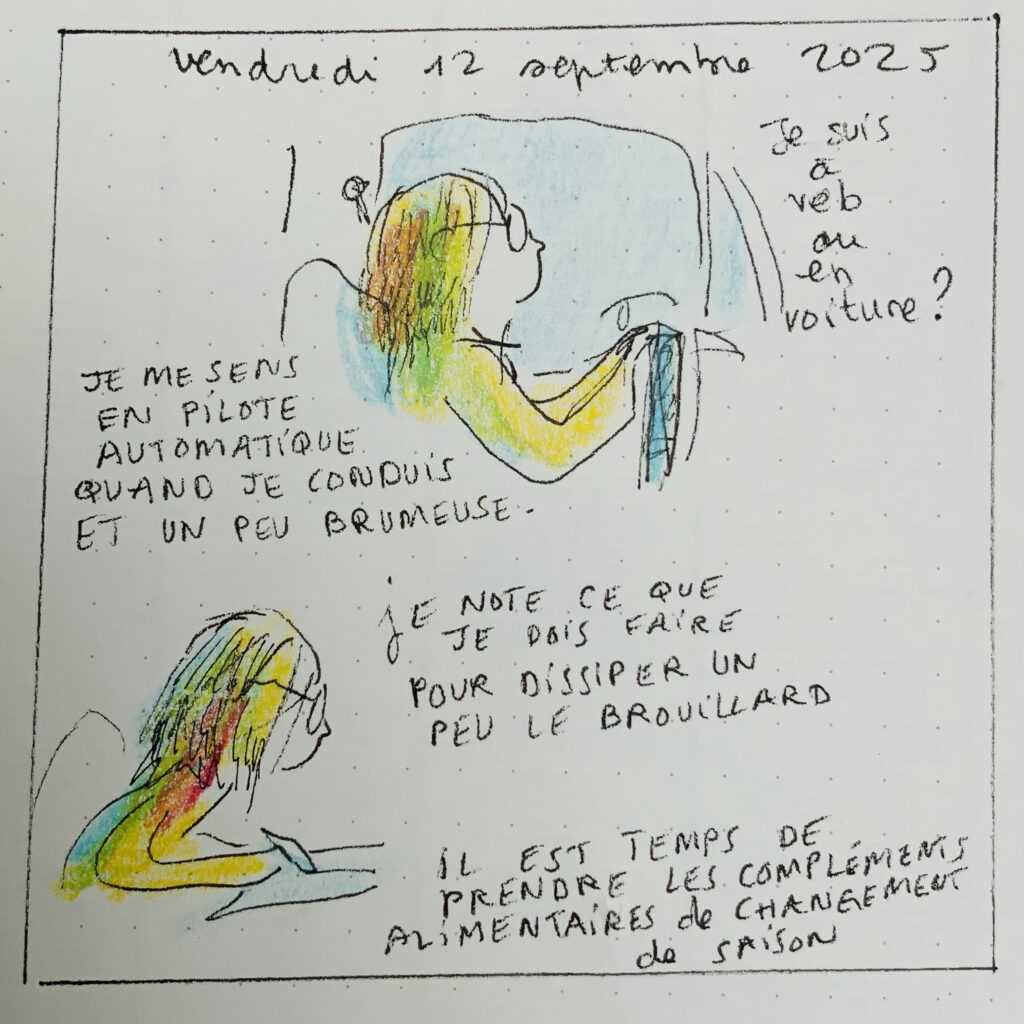 vendredi 12 septembre 2025
Je suis
à
vélo
ou
en
voiture ?
JE ME SENS
EN PILOTE
AUTOMATIQUE
QUAND JE CONDUIS
ET UN PEU BRUMEUSE.
JE NOTE CE QUE
JE DOIS FAIRE
POUR DISSIPER UN
PEU LE BROUILLARD
IL EST TEMPS DE
PRENDRE LES COMPLÉMENTS
ALIMENTAIRES de CHANGEMENT
de SAISON